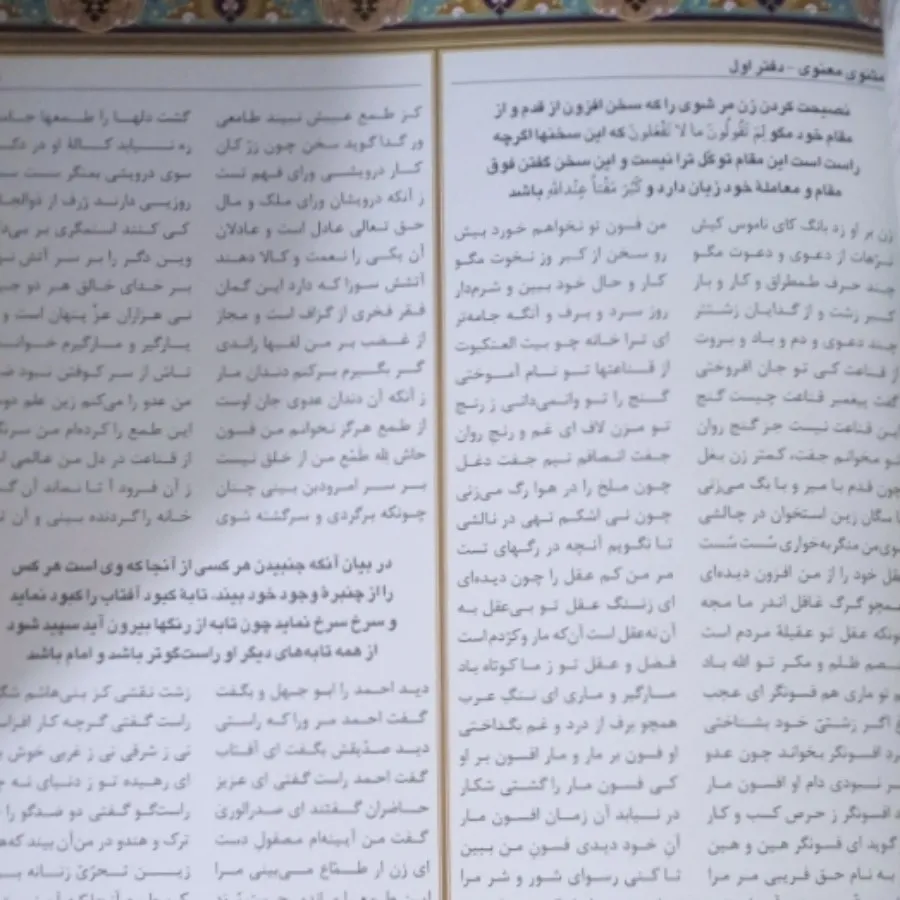 مثنوی معنوی - دفتر اول
نصیحت کردن زن مر شوی را که سخن افزون از قدم و از
مقام خود مگو لِمَ تَقُولُونَ ما لا تَفْعَلُونَ که این سخنها اگرچه
راست است این مقام توکّل ترا نیست و این سخن گفتن فوق
مقام و معاملهٔ خود زیان دارد و کَبُرَ مَقْتاً عِنْدَاللهِ باشد
زن بر او زد بانگ کای ناموس کیش من فسون تو نخواهم خورد بیش
ترّهات از دعوی و دعوت مگو رو سخن از کبر وز نخوت مگو
چند حرف طمطراق و کار و بار کار و حال خود ببین و شرم‌دار
کبر زشت و از گدایان زشتتر روز سرد و برف و آنگه جامه‌تر
چند دعوی و دم و باد و بروت ای ترا خانه چو بیت العنکبوت
از قناعت کی تو جان افروختی از قناعتها تو نام آموختی
گفت پیغمبر قناعت چیست گنج گنج را تو وانمی‌دانی ز رنج
این قناعت نیست جز گنج روان تو مزن لاف ای غم و رنج روان
تو مخوانم جفت، کمتر زن بغل جفت انصافم نیم جفت دغل
چون قدم با میر و با بگ می‌زنی چون ملخ را در هوا رگ می‌زنی
با سگان زین استخوان در چالشی چون نی اشکم تهی در نالشی
سوی‌من منگر به‌خواری سُست سُست تا نگویم آنچه در رگهای تست
عقل خود را از من افزون دیده‌ای مر من کم عقل را چون دیده‌ای
همچو گرگ غافل اندر ما مجه ای ز ننگ عقل تو بی‌عقل به
چونکه عقل تو عقیلهٔ مردم است آن نه عقل است آن‌که مار و کژدم است
خصم ظلم و مکر تو الله باد فضل و عقل تو ز ما کوتاه باد
هم تو ماری هم فسونگر ای عجب مارگیر و ماری ای ننگِ عرب
زاغ اگر زشتیّ خود بشناختی همچو برف از درد و غم بگداختی
مرد افسونگر بخواند چون عدو او فسون بر مار و مار افسون بر او
گر نبودی دام او افسون مار کی فسون مار را گشتی شکار
مرد افسونگر ز حرص کسب و کار در نیابد آن زمان افسون مار
مار گوید ای فسونگر هین و هین آنِ خود دیدی فسونِ من ببین
تو به نام حق فریبی مر مرا تا کنی رسوای شور و شر مرا
کز طمع عیبش نبیند طامعی گشت دلها را طمعها
ور گدا گوید سخن چون زرّ کان ره نیابد کالهٔ او در
کار درویشی ورای فهم تست سوی درویشی بمنگر سست
ز آنکه درویشان ورای ملک و مال روزیی دارند ژرف از
حق تعالی عادل است و عادلان کی کنند استمگری بر
آن یکی را نعمت و کالا دهند وین دگر را بر سر آتش
آتشش سوزا که دارد این گمان بر خدای خالق هر دو
فقر فخری از گزاف است و مجاز نی هزاران عزّ پنهان است و
از غضب بر من لقبها راندی یارگیر و مارگیرم
گر بگیرم برکنم دندان مار تاش از سر کوفتن نبود
ز آنکه آن دندان عدوی جان اوست من عدو را می‌کنم زین علم
از طمع هرگز نخوانم من فسون این طمع را کرده‌ام من
حاش لِله طمْع من از خلق نیست از قناعت در دل من عالمی
بر سر امرودبن بینی چنان ز آن فرود آ تا نماند آن
چونکه برگردی و سرگشته شوی خانه را گردنده بینی و آن
در بیان آنکه جنبیدن هر کسی از آنجا که وی است هر کس
را از چنبرهٔ وجود خود بیند، تابهٔ کبود آفتاب را کبود نماید
و سرخ سرخ نماید چون تابه از رنگها بیرون آید سپید شود
از همه تابه‌های دیگر او راست‌گوتر باشد و امام باشد
دید احمد را ابو جهل و بگفت زشت نقشی کز بنی‌هاشم
گفت احمد مر ورا که راستی راست گفتی گرچه کار
دید صدّیقش بگفت ای آفتاب نی ز شرقی نی ز غربی خوش
گفت احمد راست گفتی ای عزیز ای رهیده تو ز دنیای نه
حاضران گفتند ای صدرالوری راست‌گو گفتی دو ضدگو را
گفت من آیینه‌ام مصقول دست ترک و هندو در من‌آن بیند
ای زن ار طمّاع می‌بینی مرا زین تحرّیّ زنانه